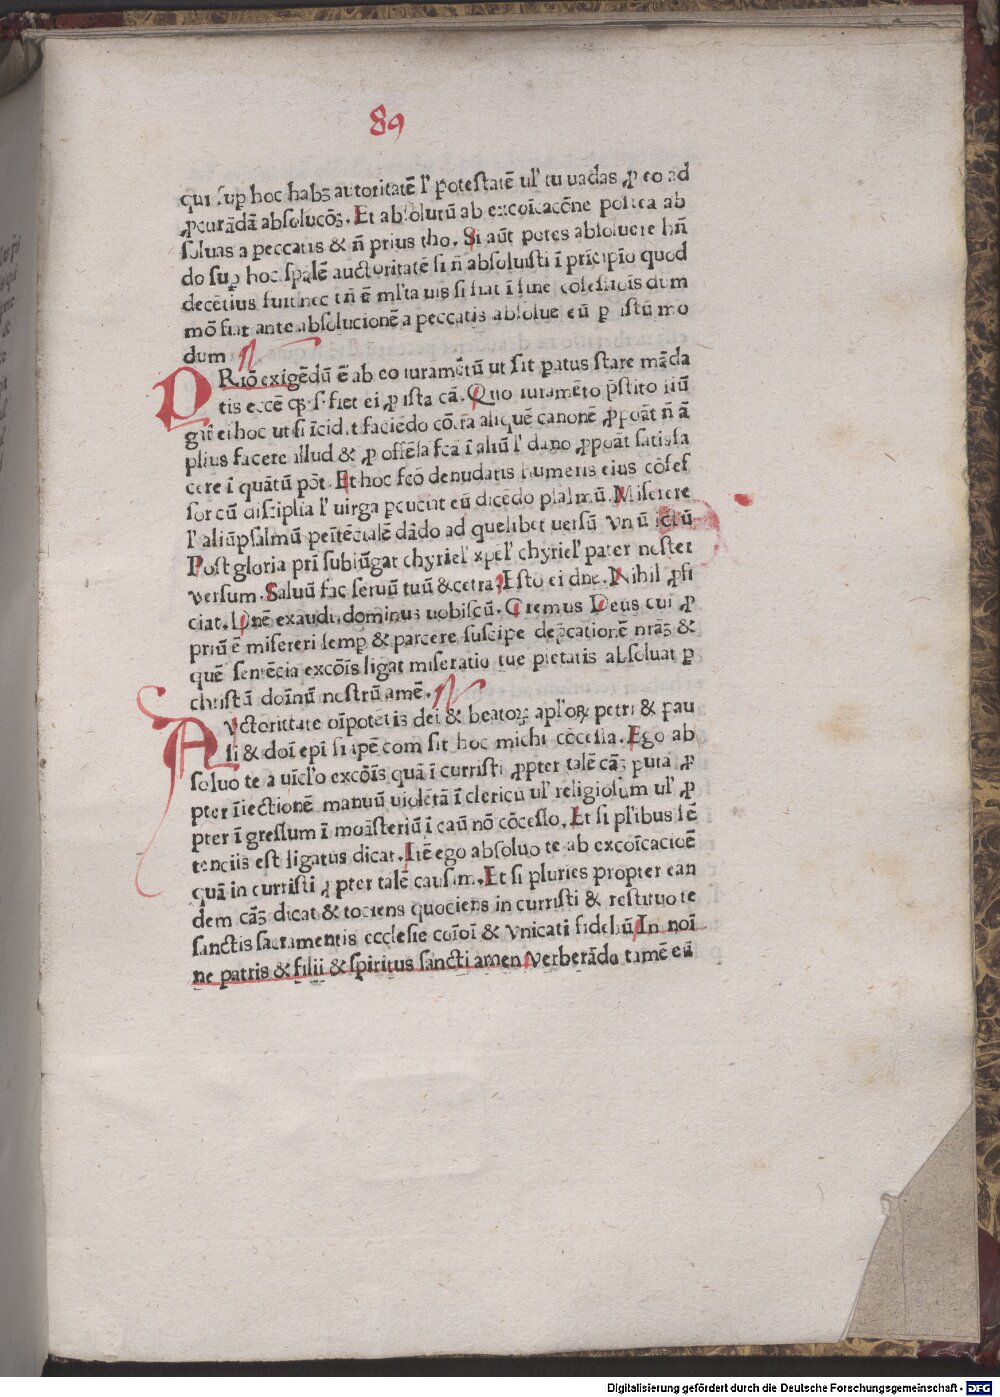 89
qui sup hoc habꝫ autoritatē l' potestatē ul' tu uadas ꝓ eo ad
ꝓcurādā absolucōꝫ. Et absolutū ab excoīcacōne postea ab
soluas a peccatis & n̄ prius tho. Si aūt potes absoluere hn̄
do sup hoc spāle auctoritatē si n̄ absoluisti ī prīcipīo quod
decētius fuit nec tn̄ ē ml'ta uis si fiat ī fine cōfessiōis dum
mō fiat ante absolucionē a peccatis absolue eū ꝑ istū mo
dum
PRiō exigēdū ē ab eo iuramētū ut sit patus stare māda
tis eccē qꝫ ·s· fiet ei ꝓ ista cā. Quo iuramēto p̄stito iiū
gat ei hoc ut si īcidit faciēdo cōtra aliquē canonē ꝓpoāt n̄ ā
plius facere illud & ꝓ offēsa fcā ī aliū l' dāno ꝓpoāt satisfa
cere ī quātū pōt. Et hoc fcō denudatis humeris eius cōfes
sor cū discipliā l' uirga ꝑcuciat eū dicēdo psalmū. Miserere
l' aliūpsalmū penītēcialē dādo ad quēlibet uersū vnū ictū
Post gloria pri subiūgat chyriel' xpel' chyriel' pater noster
versum. Saluū fac seruū tuū & cetra. Esto ei dne. Nihil ꝓfi
ciat. Dnē exaudi. dominus uobiscū. Oremus Deus cui ꝓ
priū ē misereri semp & parcere suscipe dep̄cationē nrāꝫ &
quē sentēcia excōīs ligat miseratio tue pietatis absoluat ꝑ
christū doīnū nostrū amē.
Avctorittate oīpotētis dei & beatoꝝ apl'oꝝ petri & pau
li & doī epī si ipē com sit hoc michi cōcessa. Ego ab
soluo te a uīcl'o excōīs quā ī curristi ꝓpter talē cāꝫ puta ꝓ
pter īiectionē manuū uiolētā ī clericū ul' religiosum ul' ꝓ
pter ī gressum ī moāsteriū ī caū nō cōcesso. Et si pl'ibus sē
tenciis est ligatus dicat. Itē ego absoluo te ab excoīcacioē
quā in curristi ꝓpter talē causam. Et si pluries propter ean
dem cāꝫ dicat & tociens quociens in curristi & restituo te
sanctis sacramentis ecclesie coīoī & vnicati fidelıū In noī
ne patris & filii & spiritus sancti amen verberādo tamē eū
Digitalisierung gefördert durch die Deutsche Forschungsgemeinschaft - DFG